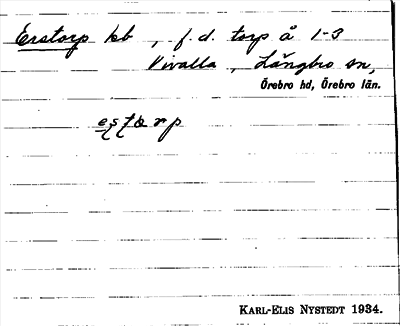 Erstorp hb, f.d. torp å 1-3
Vivalla, Långbro sn,
Örebro hd, Örebro län.
estɷrp
KARL-ELIS NYSTEDT 1934.